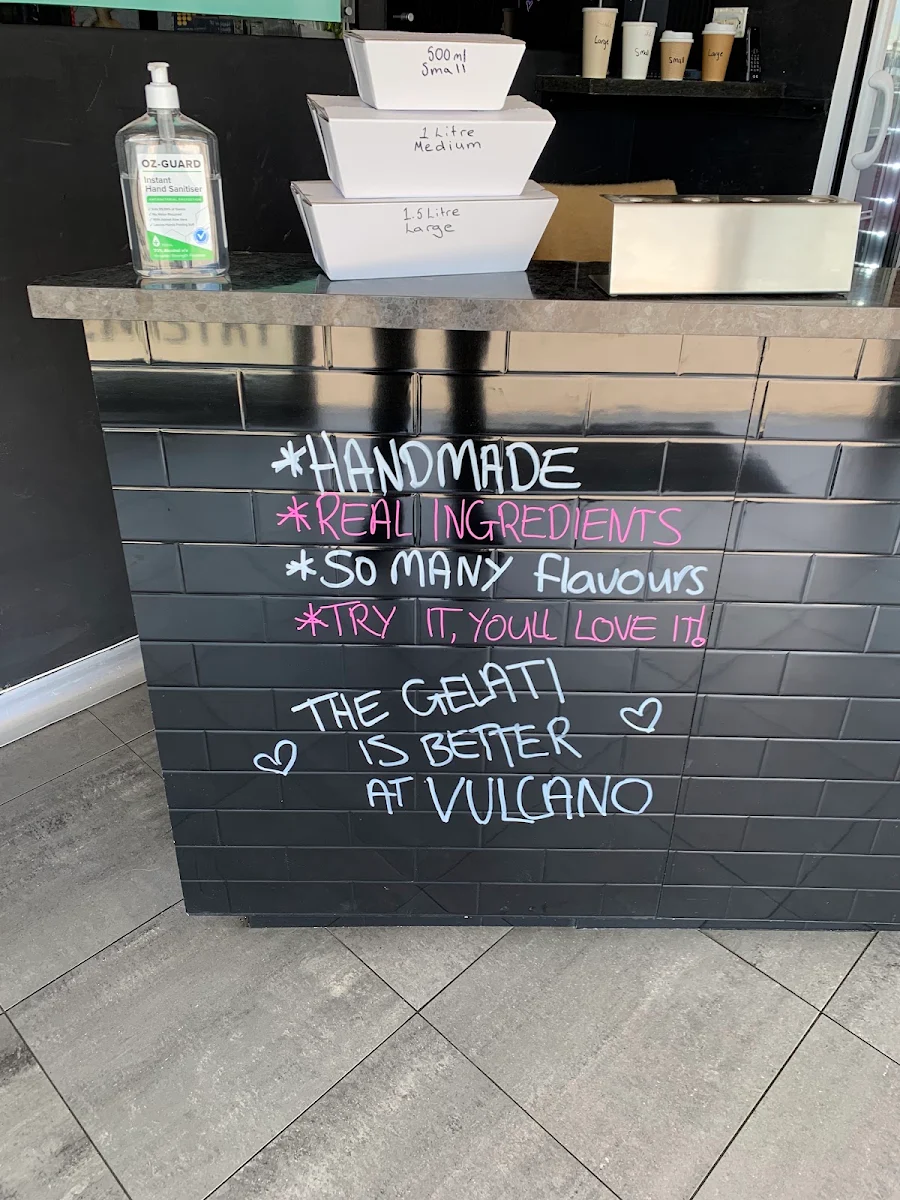 500ml
Small
1 Litre
Medium
1.5 Litre
Large
Large
Small
Small
Large
OZ-GUARD
Instant
Hand Sanitiser
*HANDMADE
*REAL INGREDIENTS
*SO MANY flavours
*TRY IT, YOULL LOVE IT!
THE GELATI
IS BETTER
AT VULCANO